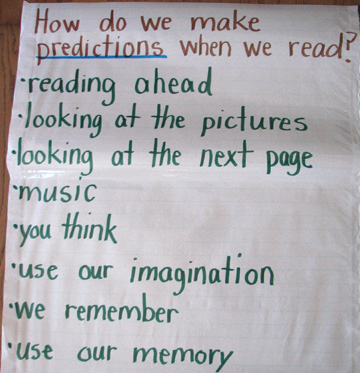 How do we make
predictions when we read?
·reading ahead
·looking at the pictures
·looking at the next page
·music
·you think
·use our imagination
·we remember
·use our memory